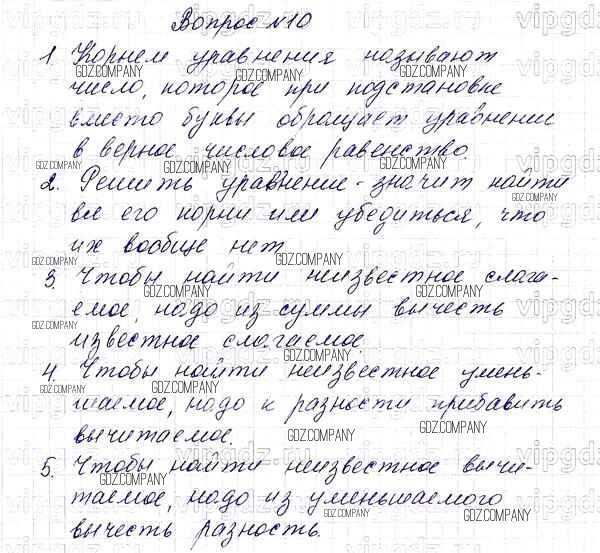 Вопрос №10
1 Корнем уравнения называют
число, которое при подстановке
вместо буквы обращает уравнении
в верное числовое равенство.
2. Решить уравнение - значит найти
все его корни или убедиться, что
их вообще нет
3. Чтобы найти неизвестное слага-
емое, надо из суммы вычесть
известное слагаемое.
4. Чтобы найти неизвестное умень-
шаемое, надо к разности прибавить
вычитаемое.
5. Чтобы найти неизвестное вычи-
таемое, надо из уменьшаемого
вычесть разность.